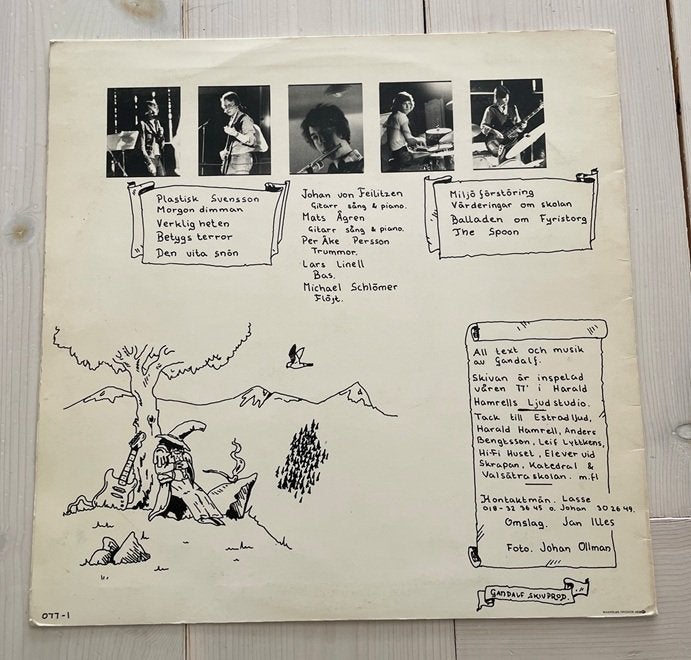 Plastisk Svensson
Morgon dimman
Verklig heten
Betygs terror
Den vita snön
Johan von Feilitzen
Gitarr sång & piano.
Mats Ågren
Gitarr sång & piano.
Per Åke Persson
Trummor.
Lars Linell
Bas.
Michael Schlömer
Flöjt.
Miljö förstöring
Värderingar om skolan
Balladen om Fyristorg
The Spoon
All text och musik
av Gandalf.
Skivan är inspelad
våren 77' i Harald
Hamrells Ljudstudio.
Tack till Estradljud,
Harald Hamrell, Anders
Bengtsson, Leif Lyttkens,
Hi-Fi Huset, Elever vid
Skrapan, Katedral &
Valsätraskolan. m.fl
Kontaktmän. Lasse
018-32 36 45 o. Johan 30 26 49.
Omslag. Jan Illes
Foto. Johan Ollman
GANDALF SKIVPROD.
077-1